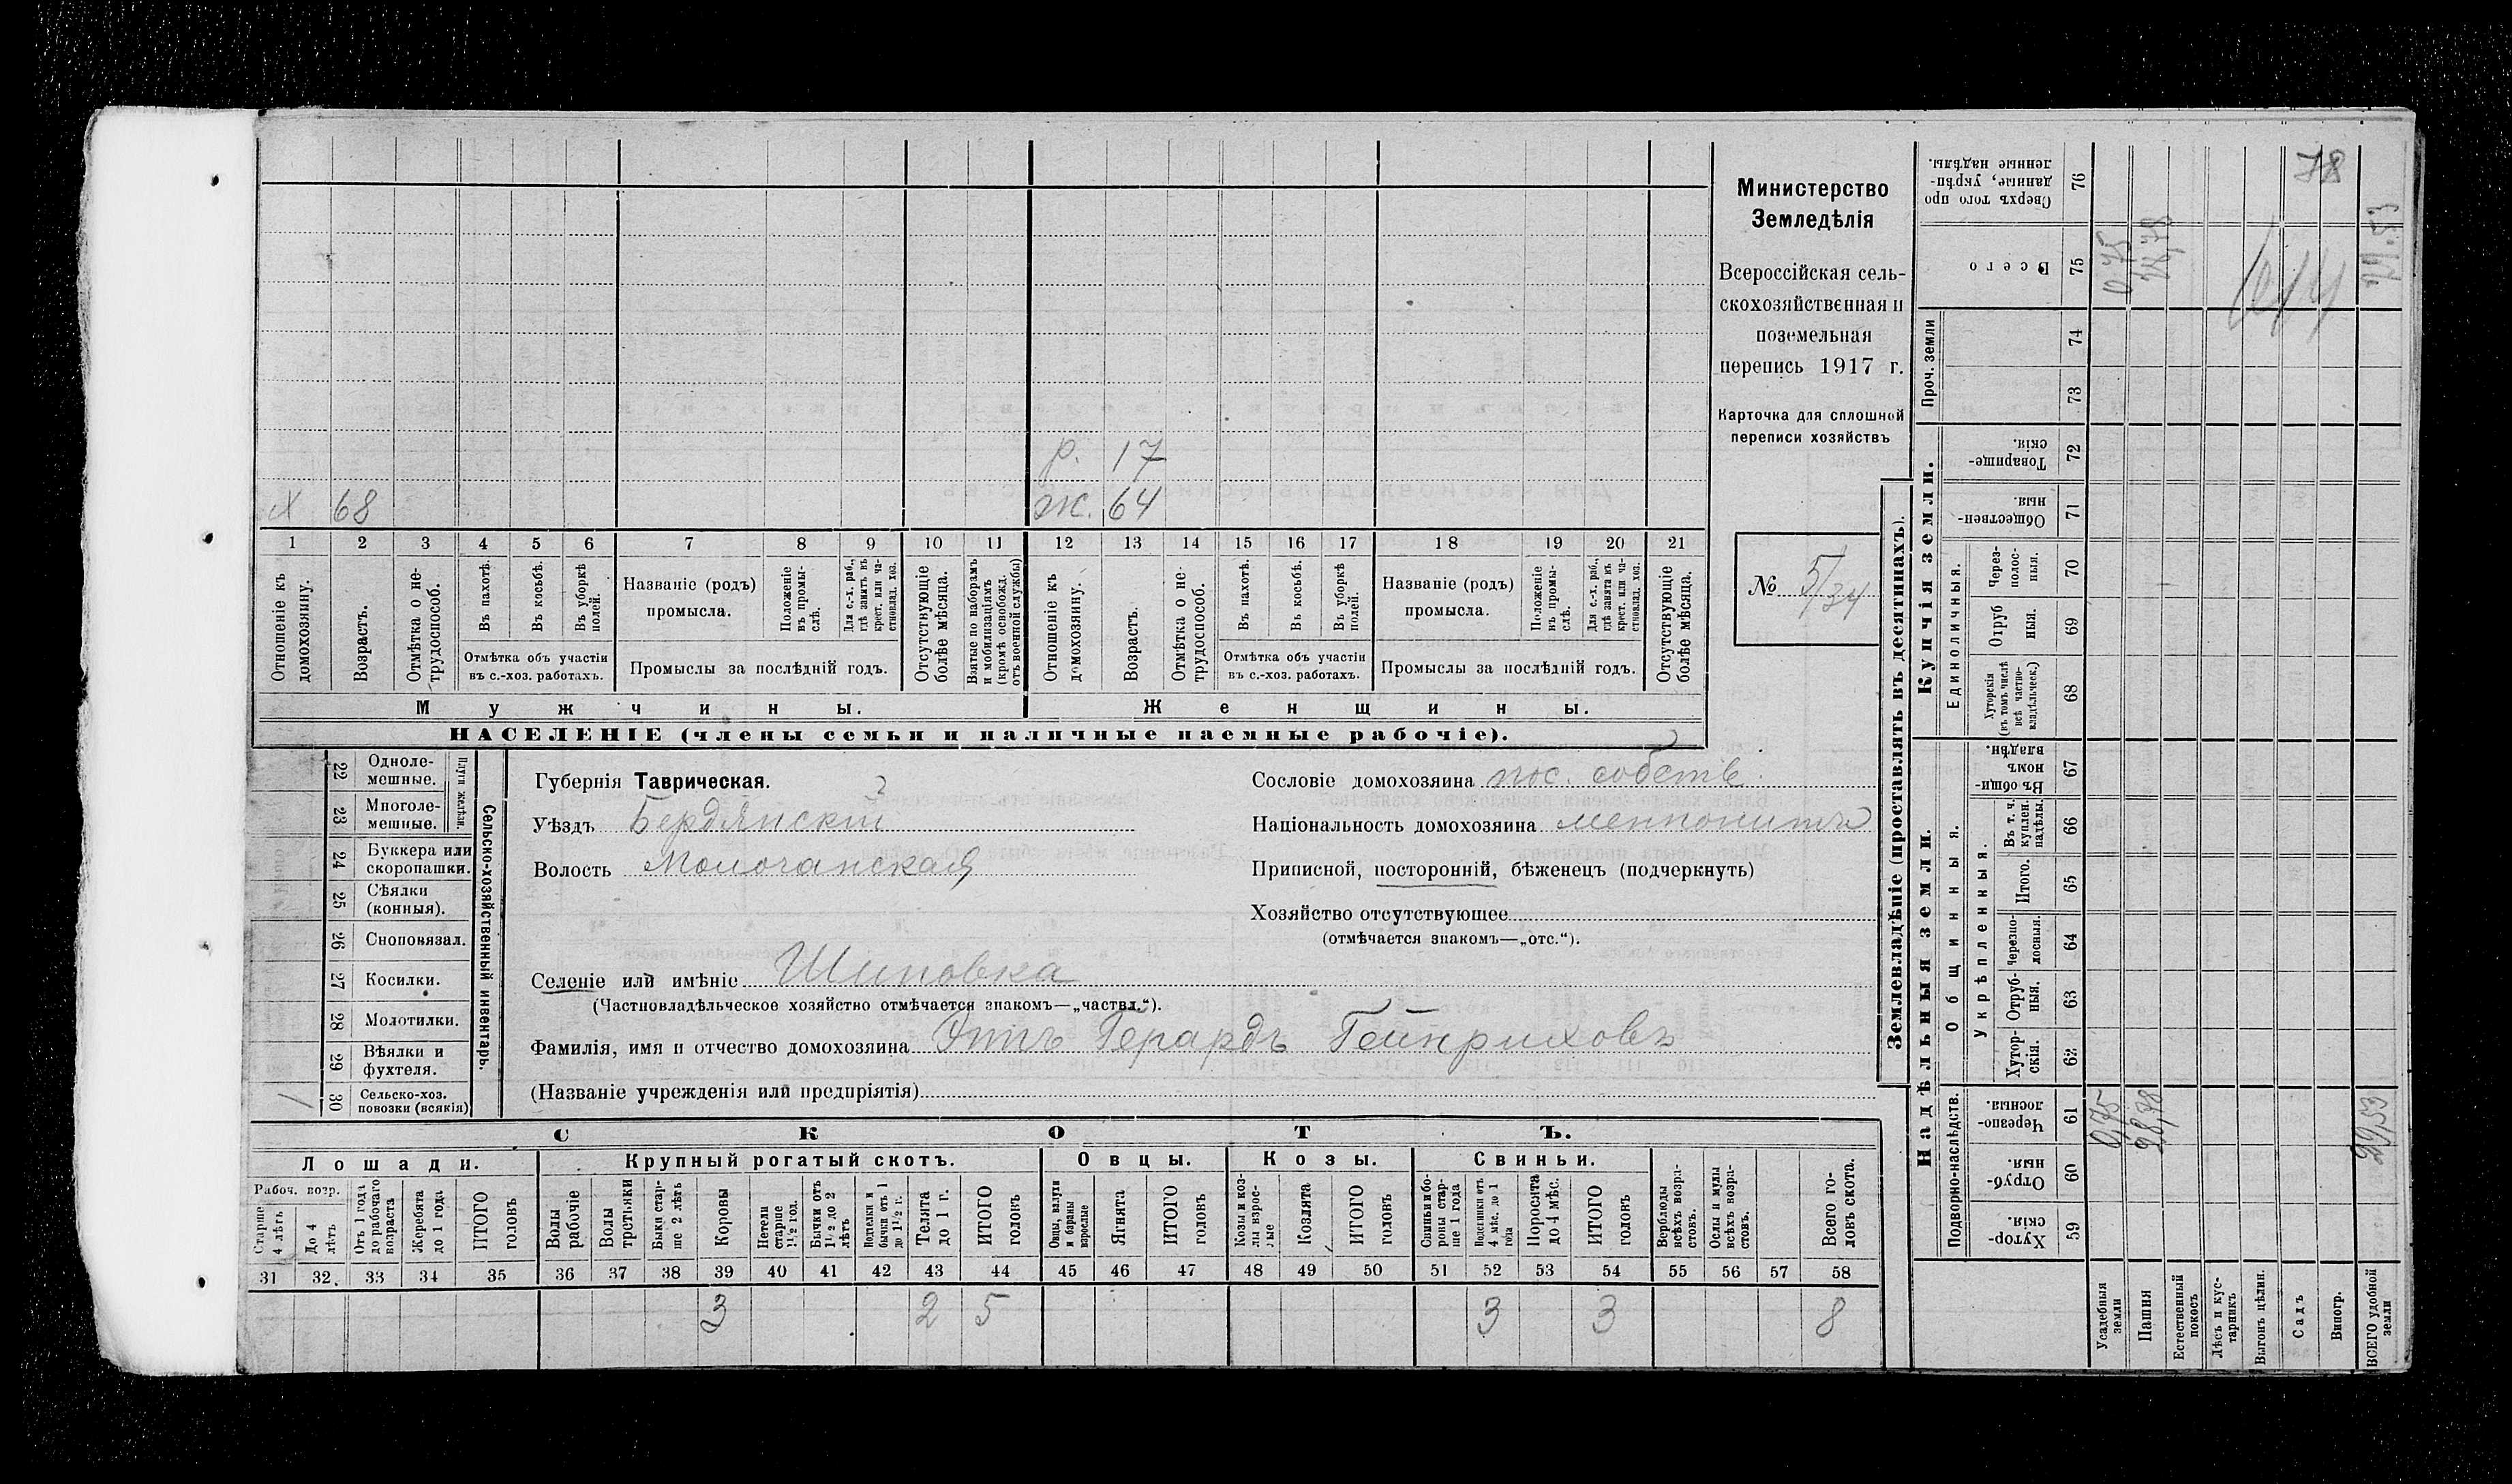 р. 17
х 68 ж. 64
1 2 3 4 5 6 7 8 9 10 11 12 13 14 15 16 17 18 19 20 21
Отношеніе къ домохозяину.
Возрастъ.
Отмѣтка о не-трудоспособ.
Въ пахотѣ.
Въ косьбѣ.
Въ уборкѣ полей.
Отмѣтка объ участіи
въ с.-хоз. работахъ.
Названіе (родъ)
промысла.
Положеніе въ промы-слѣ.
Для с.-х. раб., гдѣ занятъ въ крест. или ча-стновлад. хоз.
Промыслы за послѣдній годъ.
Отсутствующіе болѣе мѣсяца.
Взятые по наборамъ и мобилизаціямъ (кромѣ освобожд. отъ военной службы)
Отношеніе къ домохозяину.
Возрастъ.
Отмѣтка о не-трудоспособ.
Въ пахотѣ.
Въ косьбѣ.
Въ уборкѣ полей.
Отмѣтка объ участіи
въ с.-хоз. работахъ.
Названіе (родъ)
промысла.
Положеніе въ промы-слѣ.
Для с.-х. раб., гдѣ занята въ крест. или ча-стновлад. хоз.
Промыслы за послѣдній годъ.
Отсутствующіе болѣе мѣсяца.
Мужчины. Женщины.
НАСЕЛЕНІЕ (члены семьи и наличные наемные рабочіе).
Министерство
Земледѣлія
Всероссійская сель-
скохозяйственная и
поземельная
перепись 1917 г.
Карточка для сплошной
переписи хозяйствъ
№ 5/34
22 Одноле-мешные.
23 Многоле-мешные.
Плуги желѣзн.
24 Буккера или скоропашки.
25 Сѣялки (конныя).
26 Сноповязал.
27 Косилки.
28 Молотилки.
29 Вѣялки и фухтеля.
1 30 Сельско-хоз. повозки (всякія)
Сельско-хозяйственный инвентарь.
Губернія Таврическая.
Уѣздъ Бердянскій
Волость Молочанская
Селеніе или имѣніе Шиповка
(Частновладѣльческое хозяйство отмѣчается знакомъ—„частвл.“).
Фамилія, имя и отчество домохозяина Эттъ Герардъ Гейнриховъ
(Названіе учрежденія или предпріятія)
Сословіе домохозяина пос. собств.
Національность домохозяина меннонитъ
Приписной, посторонній, бѣженецъ (подчеркнуть)
Хозяйство отсутствующее
(отмѣчается знакомъ—„отс.“).
СКОТЪ.
Лошади. Крупный рогатый скотъ. Овцы. Козы. Свиньи.
Рабоч. возр.
Старше 4 лѣтъ
До 4 лѣтъ
Отъ 1 года до рабочаго возраста
Жеребята до 1 года
ИТОГО головъ
Волы рабочіе
Волы третьяки
Быки стар-ше 2 лѣтъ
Коровы
Нетели старше 1½ год.
Бычки отъ 1½ до 2 лѣтъ
Подтелки и бычки отъ 1 до 1½ г.
Телята до 1 г.
ИТОГО головъ
Овцы, валухи и бараны взрослые
Ягнята
ИТОГО головъ
Козы и коз-лы взрос-лые
Козлята
ИТОГО головъ
Свиньи и бо-ровы стар-ше 1 года
Подсвинки отъ 4 мѣс. до 1 года
Поросята до 4 мѣс.
ИТОГО головъ
Верблюды всѣхъ возра-стовъ.
Ослы и мулы всѣхъ возра-стовъ.
Всего го-ловъ скота.
31 32. 33 34 35 36 37 38 39 40 41 42 43 44 45 46 47 48 49 50 51 52 53 54 55 56 57 58
3 2 5 3 3 8
Землевладѣніе (проставлять въ десятинахъ).
Надѣльныя земли. Купчія земли.
Подворно-наслѣдств.
Общинныя.
Укрѣпленныя.
Единоличныя.
Проч. земли
59 Хутор-скія.
60 Отруб-ныя.
61 Черезпо-лосныя.
62 Хутор-скія.
63 Отруб-ныя.
64 Черезпо-лосныя.
65 Итого.
66 Въ т. ч. куплен. надѣлы.
67 Въ общи-номъ владѣн.
68 Хуторскія (въ томъ числѣ всѣ частно-владѣльческ.)
69 Отруб ныя.
70 Через-полос-ныя.
71 Обществен-ныя.
72 Товарище-скія.
73
74
75 Всего
76 Сверхъ того про данные, укрѣп-ленные надѣлы.
Усадебныя земли 0,75 0,75
Пашня 28,78 28,78
Естественный покосъ
Лѣсъ и кус-тарникъ
Выгонъ цѣлин.
Садъ
Виногр.
ВСЕГО удобной земли 29,53 29,53
78